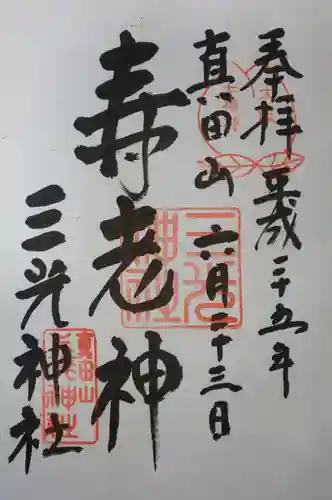 奉拝 平成二十五年
真田山 六月二十三日
寿老神
三光神社
三光神社
真田山
三光神社